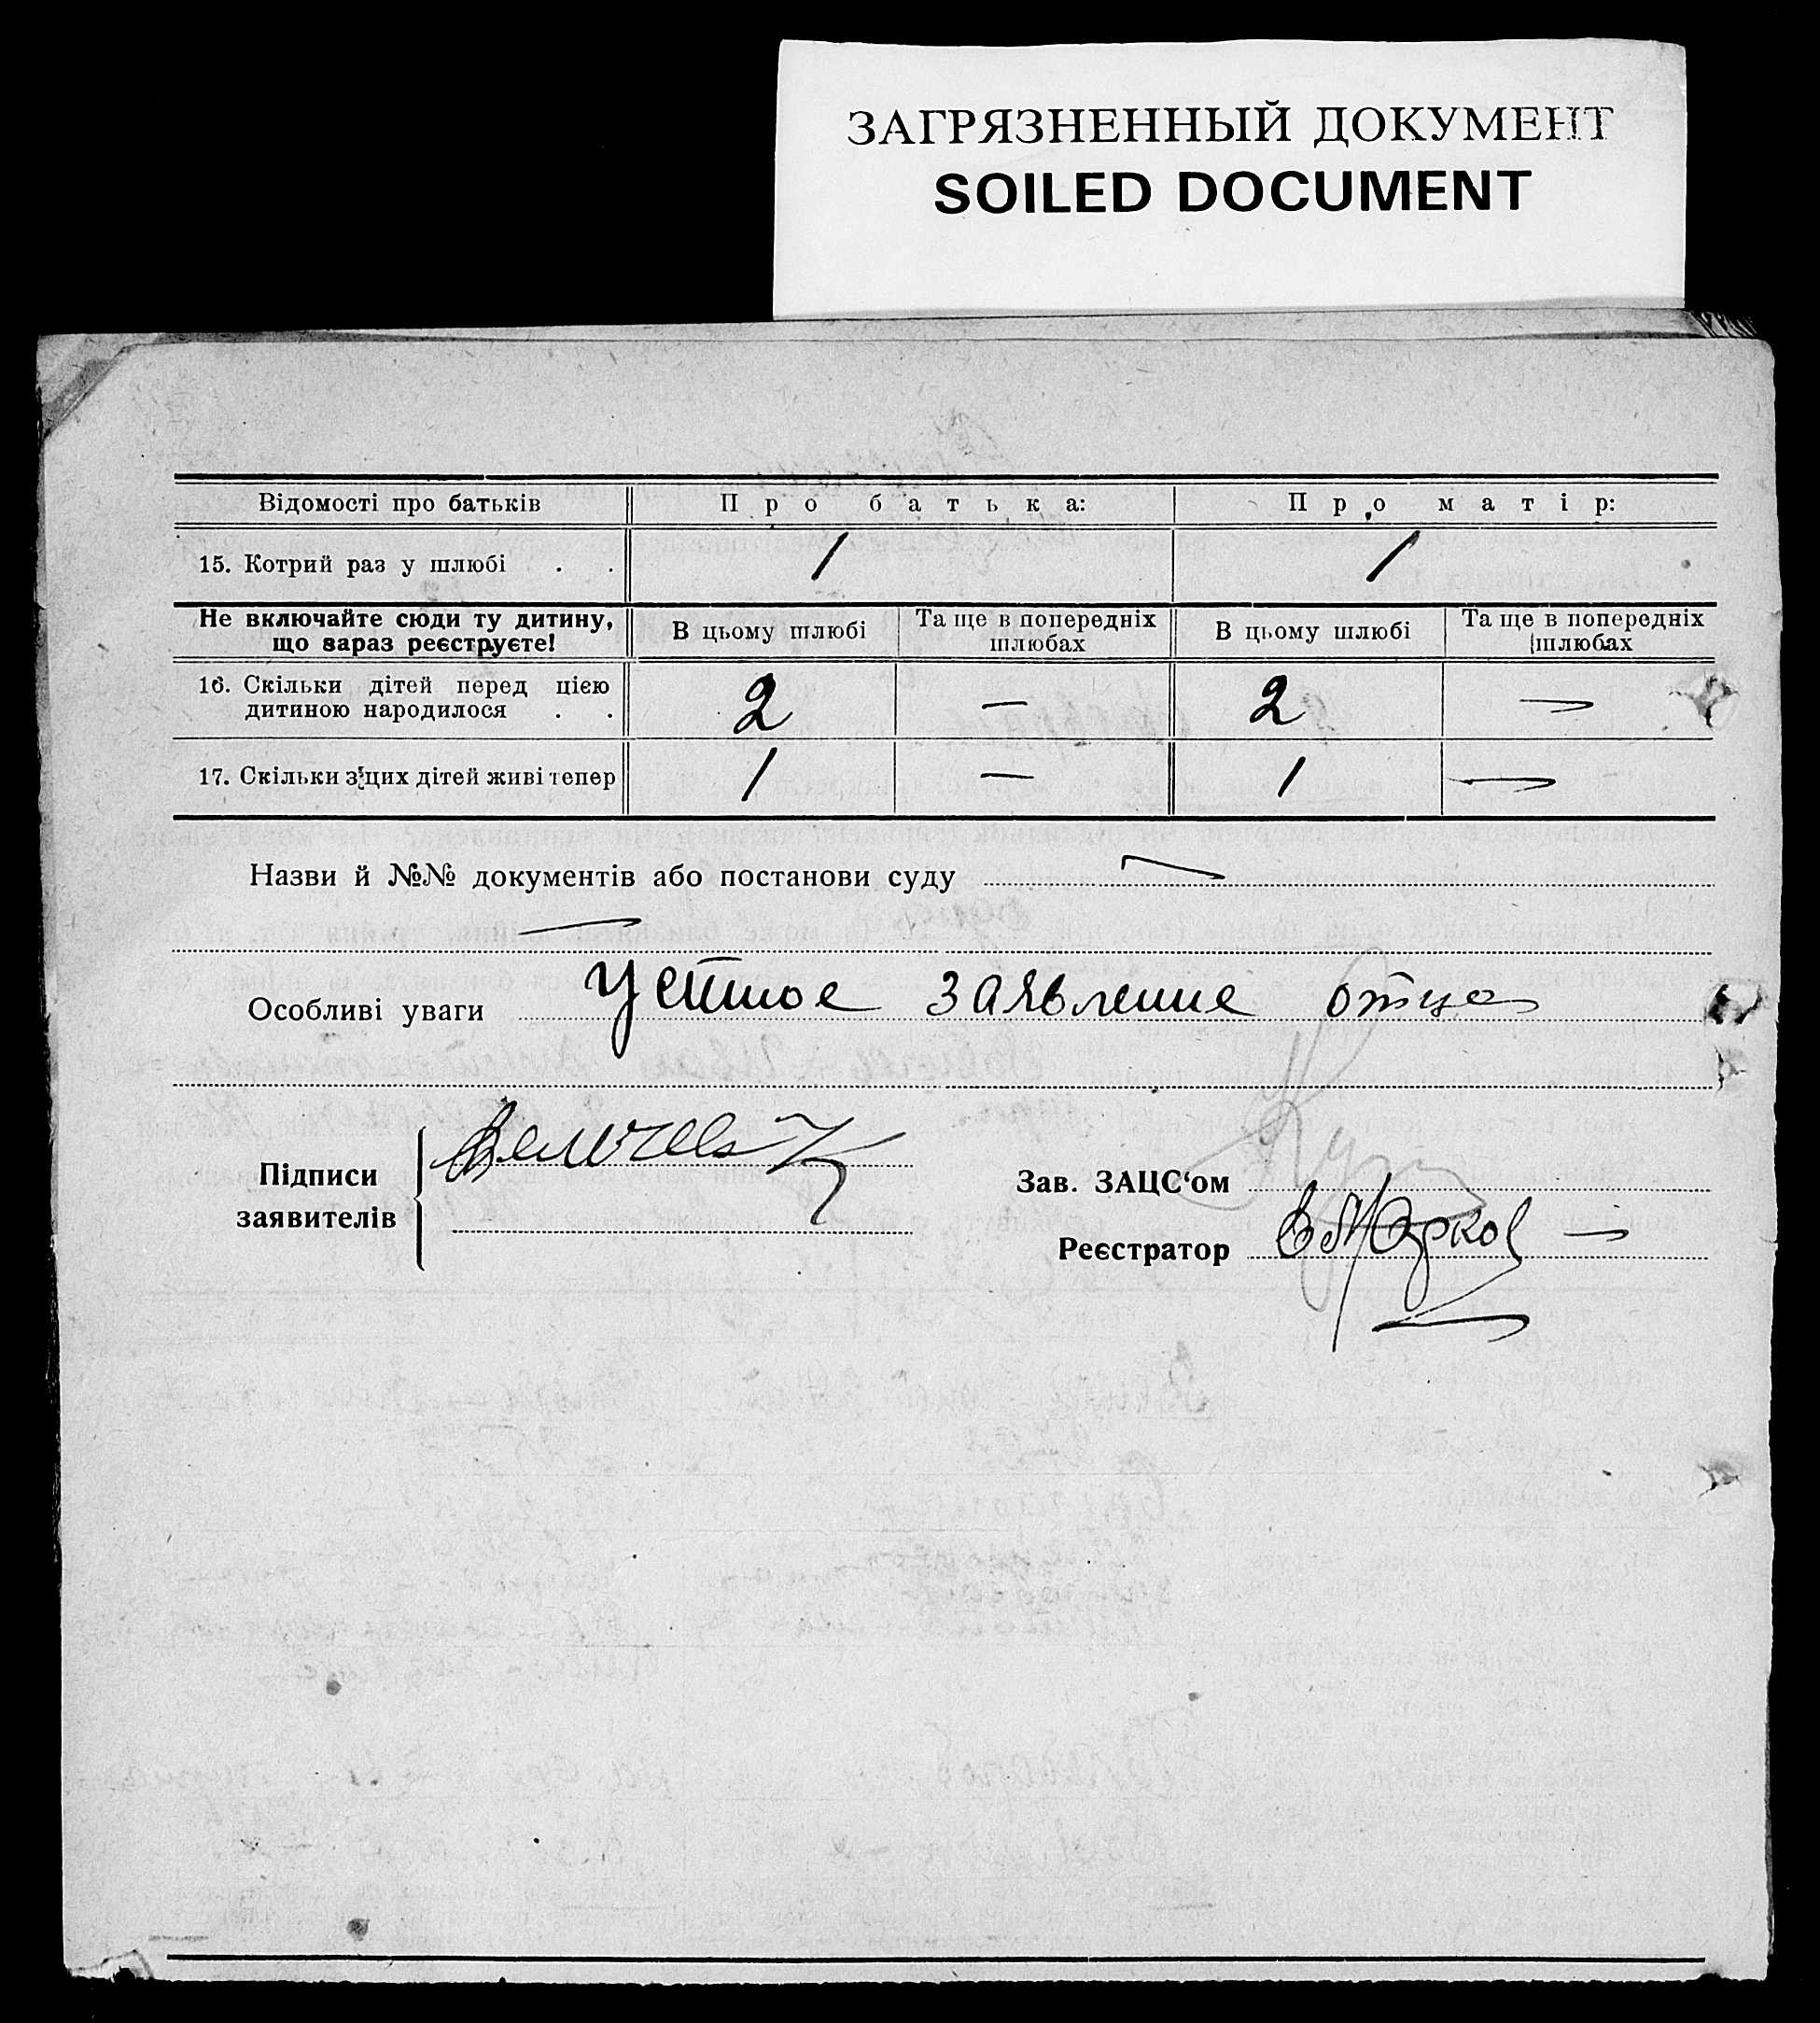 ЗАГРЯЗНЕННЫЙ ДОКУМЕНТ
SOILED DOCUMENT
Відомості про батьків Про батька: Про матір:
15. Котрий раз у шлюбі . . 1 1
Не включайте сюди ту дитину, що зараз реєструєте! В цьому шлюбі Та ще в попередніх шлюбах В цьому шлюбі Та ще в попередніх шлюбах
16. Скільки дітей перед цією
дитиною народилося . . 2 — 2 —
17. Скільки з цих дітей живі тепер 1 — 1 —
Назви й №№ документів або постанови суду —
—
Особливі уваги Устное заявление отца
Підписи
заявителів
Зав. ЗАЦС‘ом
Реєстратор В Марков —